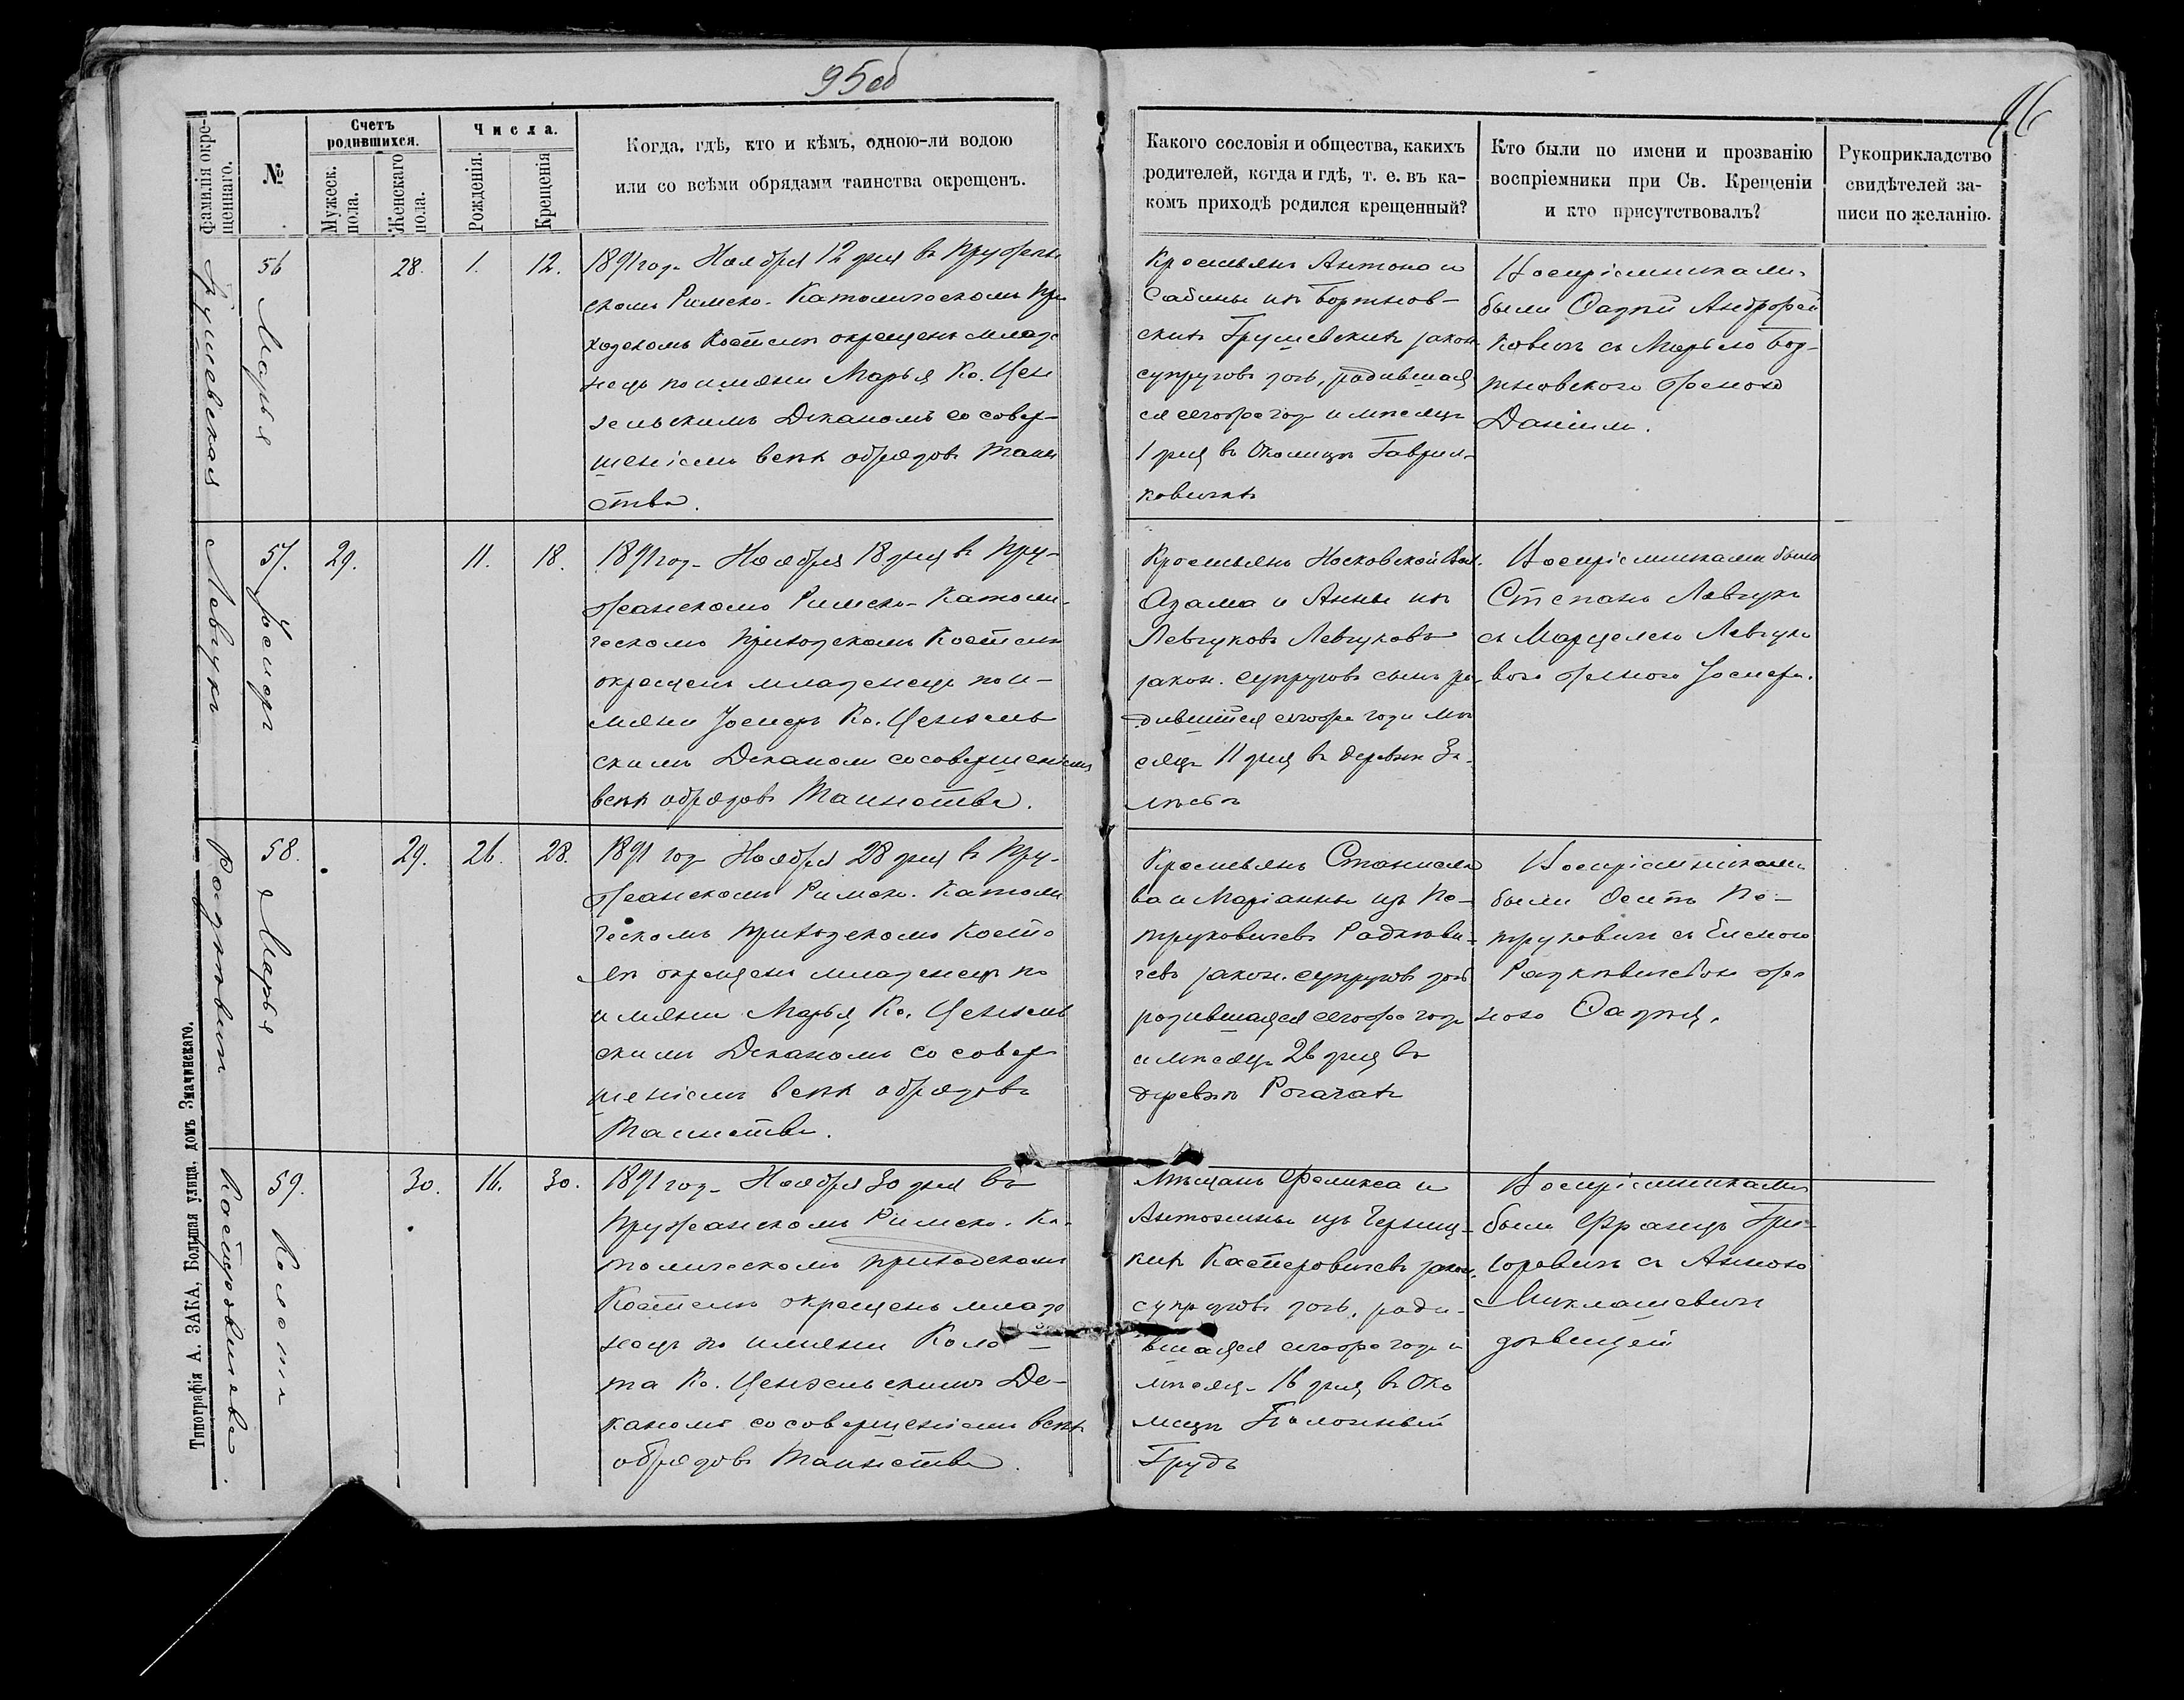 95об
96
Фамилія окре-
щеннаго.
№
Счетъ
родившихся.
Мужеск.
пола.
Женскаго
пола.
Числа.
Рожденія.
Крещенія
Когда, гдѣ, кто и кѣмъ, одною-ли водою
или со всѣми обрядами таинства окрещенъ.
Какого сословія и общества, какихъ
родителей, когда и гдѣ, т. е. въ ка-
комъ приходѣ родился крещенный?
Кто были по имени и прозванію
воспріемники при Св. Крещеніи
и кто присутствовалъ?
Рукоприкладство
свидѣтелей за-
писи по желанію.
Грушевская
56
Марья
28.
1.
12.
1891 год. Ноября 12 дня въ Пружан
скомъ Римско-Католическомъ При
ходскомъ Костелѣ окрещенъ младе
нецъ по имени Марья Кс. Цен
зельскимъ Деканомъ со совер-
шеніемъ всѣхъ обрядовъ Таин
ства.
Крестьянъ Антона и
Сабины изъ Бортнов-
скихъ Грушевскихъ закон.
супруговъ дочь, родившая
ся сегоже года и мѣсяца
1 дня въ Околицѣ Гаврил-
ковичахъ
Воспріемниками
были
Ковичъ съ Марьею Бор-
тновскаго женою
Левчукъ
57.
Іосифъ
29.
11.
18.
1891 год. Ноября 18 дня въ Пру-
жанскомъ Римско-Католи-
ческомъ Приходскомъ Костелѣ
окрещенъ младенецъ по и-
мени Іосифъ Кс. Цензель
скимъ Деканомъ со совершеніемъ
всѣхъ обрядовъ Таинства.
Крестьянъ Носковской Вол.
Адама и Анны изъ
Левчуковъ Левчуковъ
закон. супруговъ сынъ ро
дившійся сегоже года мѣ
сяца 11 дня въ деревнѣ За-
Воспріемниками были
Степанъ Левчукъ
съ Марцелею Левчуко
вою женою Іосифа.
Радкевичъ
58.
Марья
29.
26.
28.
1891 год Ноября 28 дня въ Пру-
жанскомъ Римско-Католи
ческомъ Приходскомъ Косте
лѣ окрещенъ младенецъ по
имени Марья Кс. Цензель
скимъ Деканомъ со совер
шеніемъ всѣхъ обрядовъ
Таинства.
Крестьянъ Станисла
ва и Маріанны изъ Пе-
труковичевъ Радкеви-
чевъ закон. супруговъ дочь
родившаяся сегоже года
и мѣсяца 26 дня въ
деревнѣ Рогачахъ
Воспріемниками
были Осипъ Пе-
труковичъ съ Еленою
Радкевичевою же
ною
Костровичева.
59.
Колета
30.
16.
30.
1891 год. Ноября 30 дня въ
Пружанскомъ Римско-Ка-
толическомъ приходскомъ
Костелѣ окрещенъ младе
нецъ по имени Коле-
та Кс. Цензельскимъ Де-
каномъ со совершеніемъ всѣхъ
обрядовъ Таинства.
Мѣщанъ Феликса и
Антонины изъ Черниц-
кихъ Костровичевъ закон.
супруговъ дочь, роди-
вшаяся сегоже года и
мѣсяца 16 дня въ Око
лицѣ
Грудъ
Воспріемниками
были Францъ Гри-
горевичъ съ Анною
Миклашевичъ
дѣвицей
Типографія А. ЗАКА, Большая улица, домъ Значинскаго.